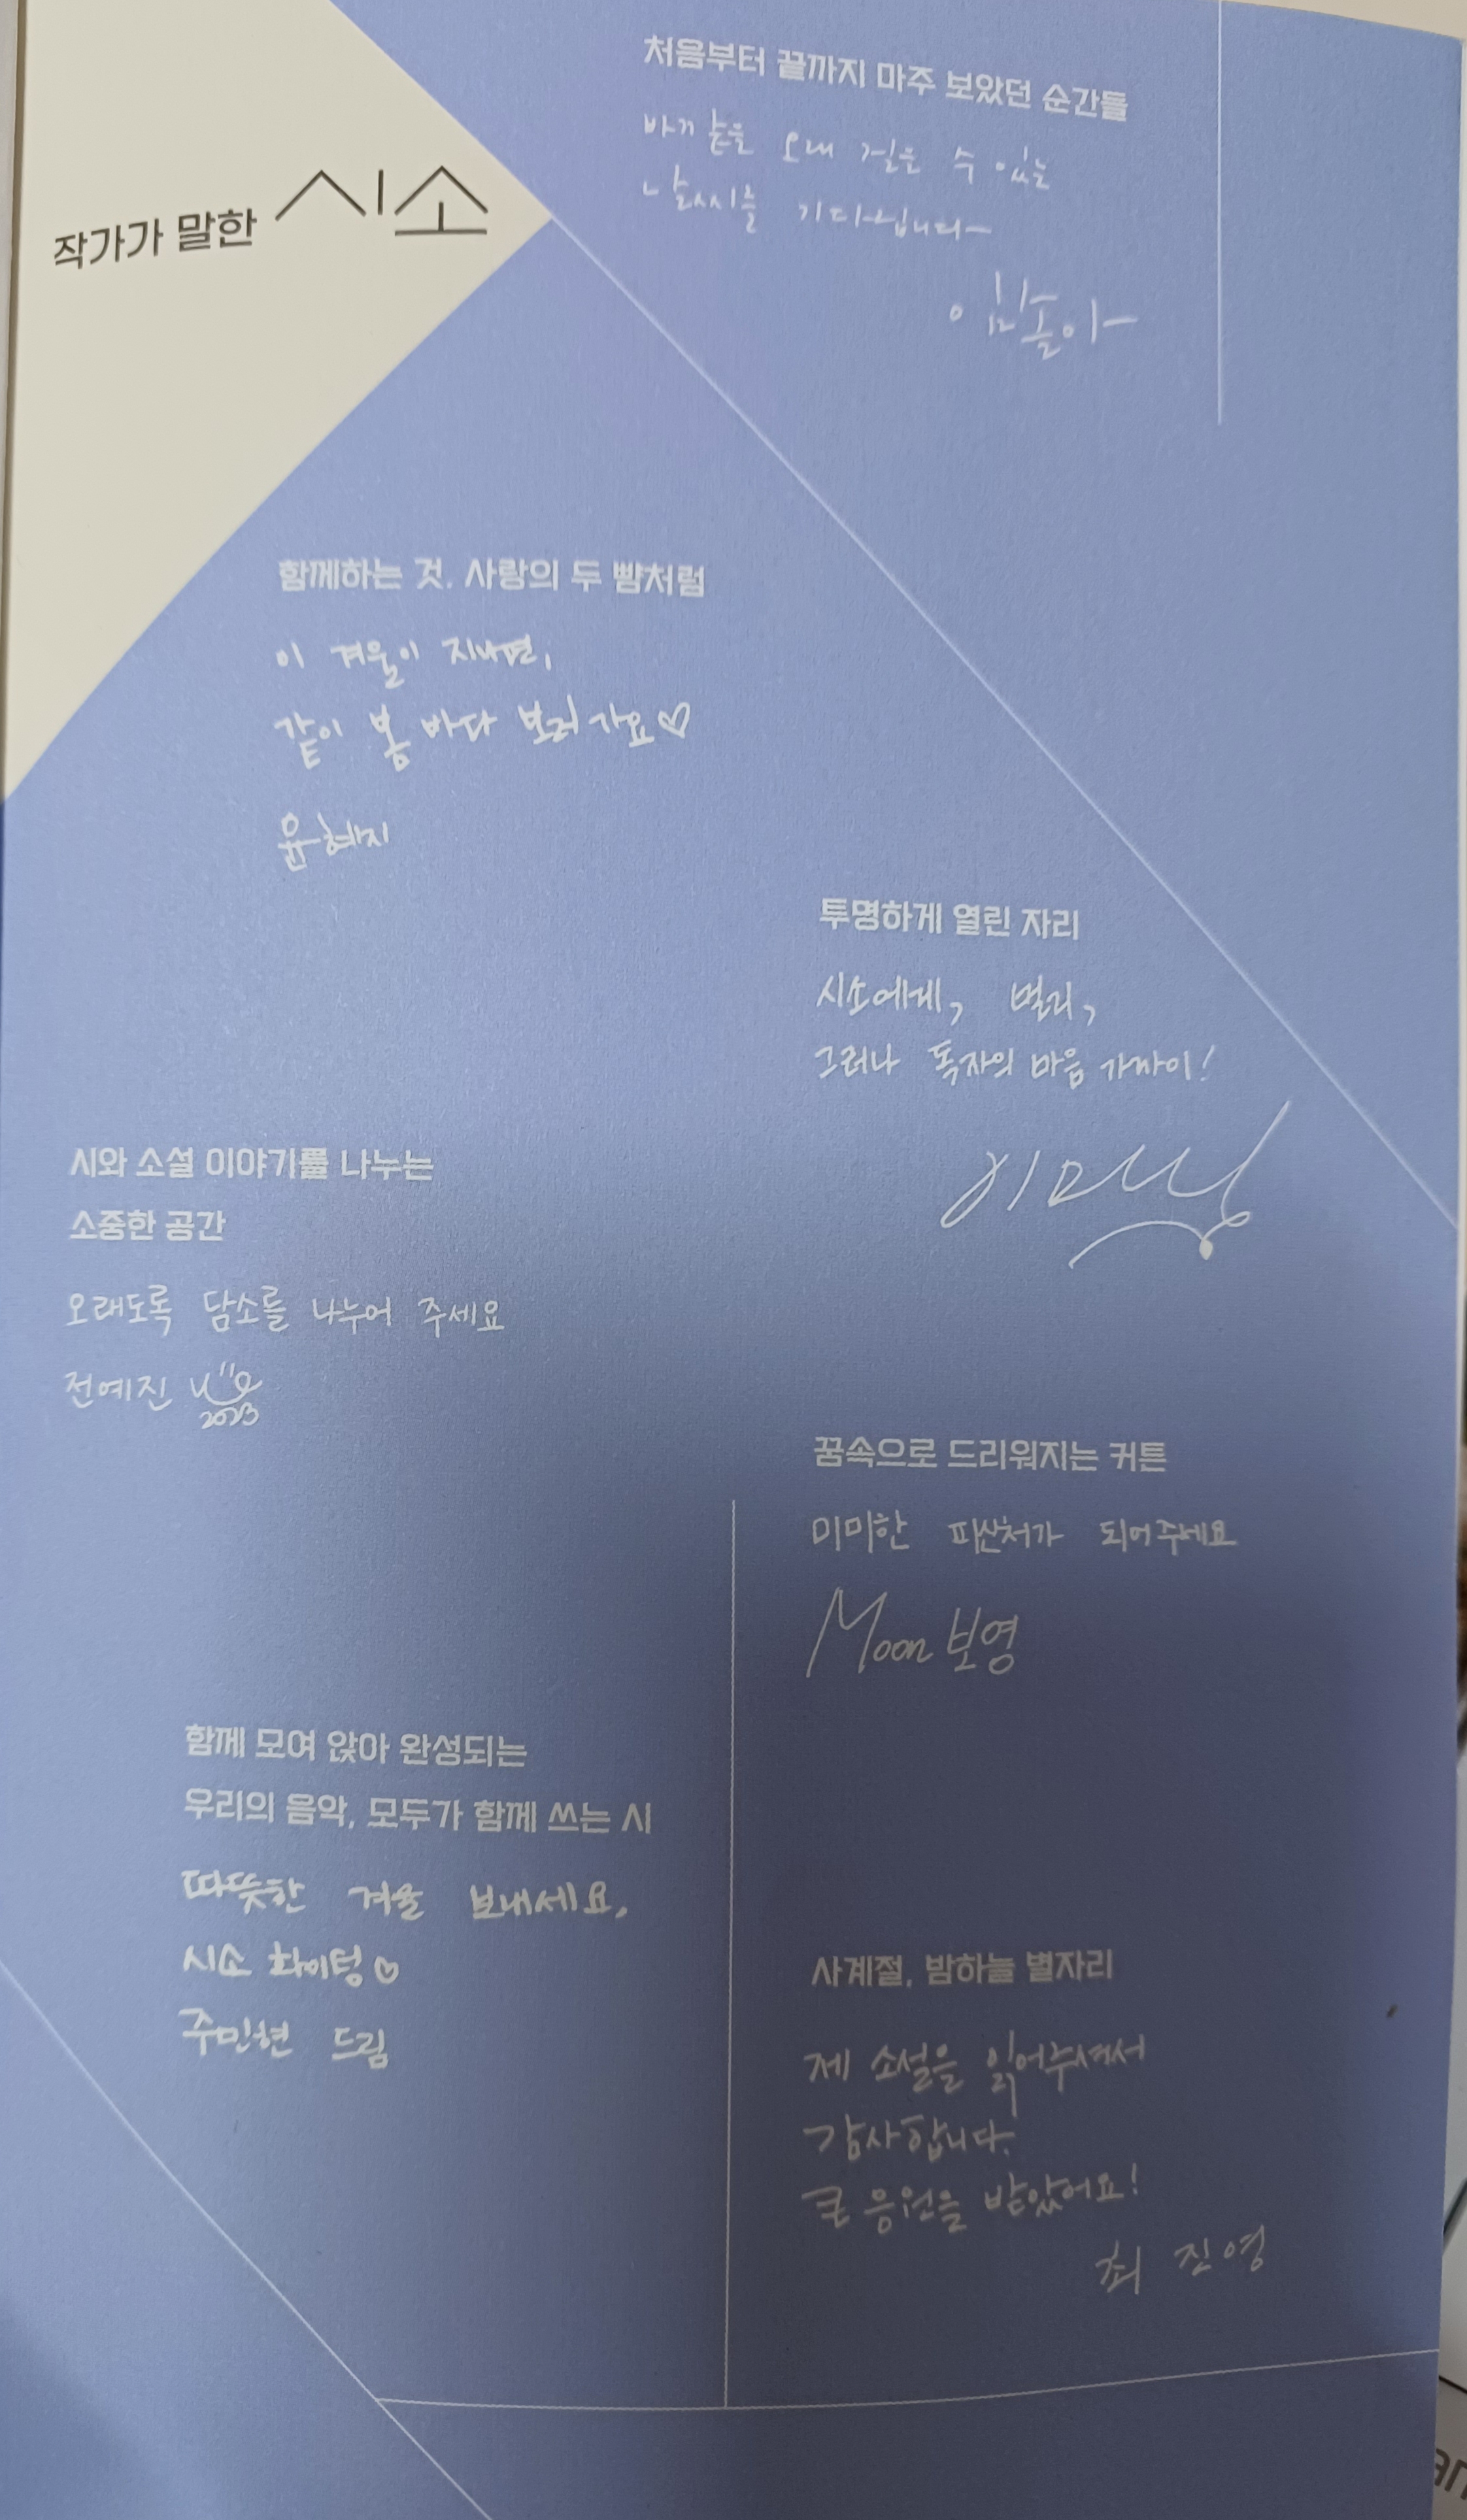 작가가 말한 시소
처음부터 끝까지 마주 보았던 순간들
바깥을 오래 걸을 수 있는
날씨를 기다립니다
임솔아
함께하는 것. 사랑의 두 뺨처럼
이 겨울이 지나면,
같이 봄 바다 보러 가요♡
윤혜지
투명하게 열린 자리
시소에게, 멀리,
그러나 독자의 마음 가까이!
시와 소설 이야기를 나누는
소중한 공간
오래도록 담소를 나누어 주세요
전예진
2023
꿈속으로 드리워지는 커튼
미미한 피산처가 되어주세요
Moon 보영
함께 모여 앉아 완성되는
우리의 음악, 모두가 함께 쓰는 시
따뜻한 겨울 보내세요,
시소 화이팅♡
주민현 드림
사계절, 밤하늘 별자리
제 소설을 읽어주셔서
감사합니다.
큰 응원을 받았어요!
최진영